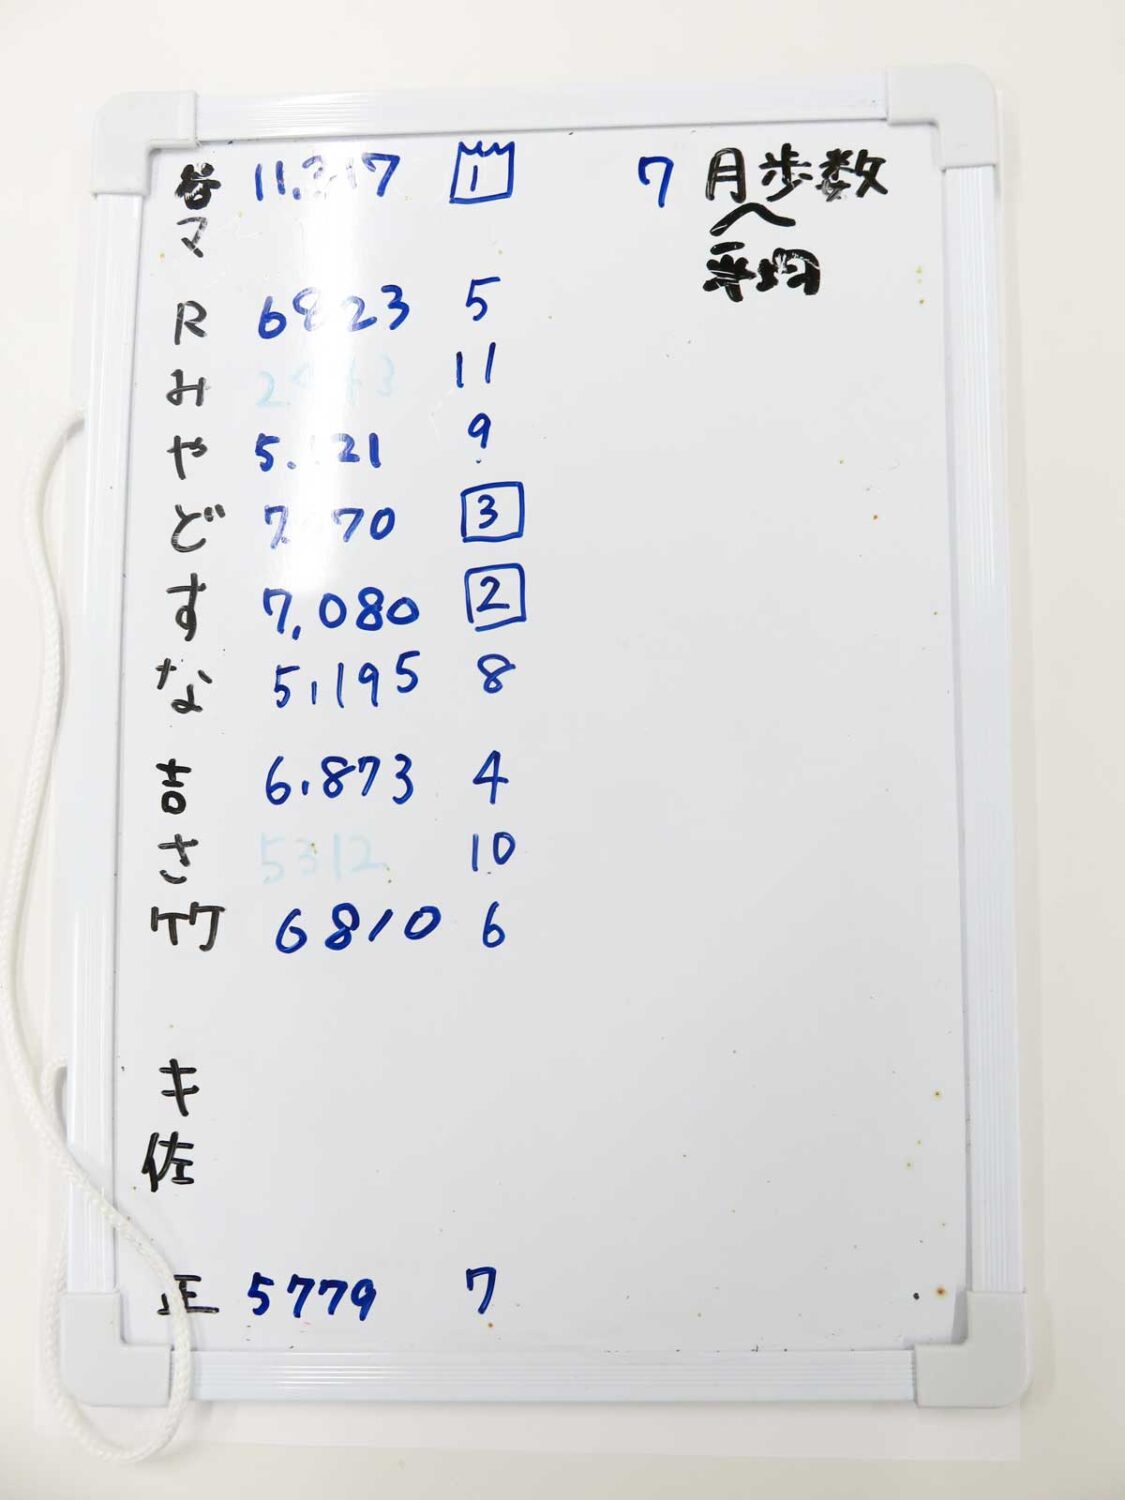 谷 11,317 1 7月歩数
マ へ
平均
R 6823 5
み 11
や 5.121 9
ど 70 3
す 7,080 2
な 5,195 8
吉 6.873 4
さ 5312 10
竹 6810 6
キ
佐
正 5779 7